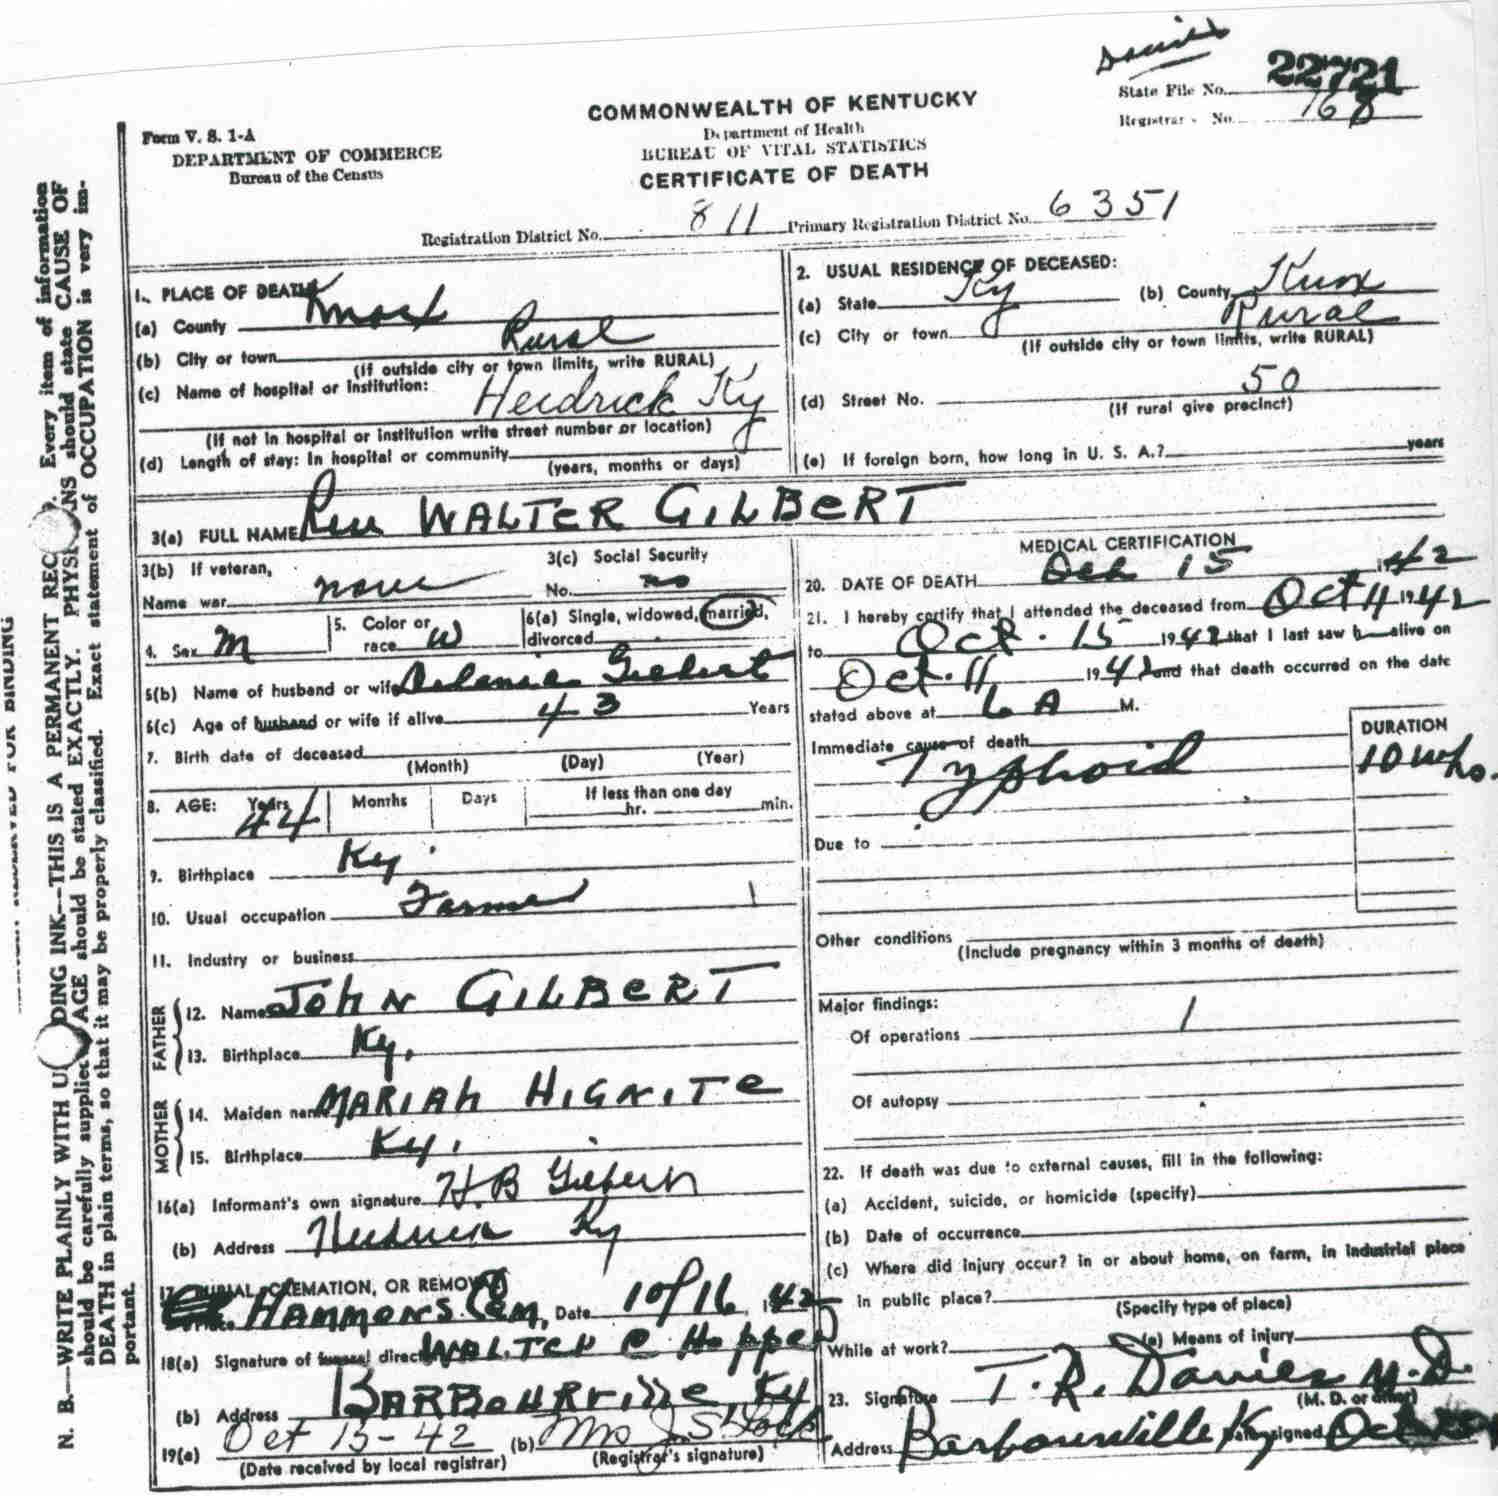 Davies
State File No. 22721
Registrar's No. 168
COMMONWEALTH OF KENTUCKY
Department of Health
BUREAU OF VITAL STATISTICS
CERTIFICATE OF DEATH
Form V. S. 1-A
DEPARTMENT OF COMMERCE
Bureau of the Census
Registration District No. 811 Primary Registration District No. 6351
1. PLACE OF DEATH
(a) County Knox
(b) City or town Rural
(If outside city or town limits, write RURAL)
(c) Name of hospital or institution:
Heidrick Ky
(If not in hospital or institution write street number or location)
(d) Length of stay: In hospital or community
(years, months or days)
2. USUAL RESIDENCE OF DECEASED:
(a) State Ky (b) County Knox
(c) City or town Rural
(If outside city or town limits, write RURAL)
(d) Street No. 50
(If rural give precinct)
(e) If foreign born, how long in U. S. A.? years
3(a) FULL NAME WALTER GILBERT
3(b) If veteran,
Name war none
3(c) Social Security
No. no
4. Sex M
5. Color or
race W
6(a) Single, widowed, married,
divorced
6(b) Name of husband or wife Gilbert
6(c) Age of husband or wife if alive 43 Years
7. Birth date of deceased
(Month) (Day) (Year)
8. AGE: Years Months Days If less than one day
44 hr. min.
9. Birthplace Ky
10. Usual occupation Farmer
11. Industry or business
FATHER
12. Name JOHN GILBERT
13. Birthplace Ky.
MOTHER
14. Maiden name MARIAH HIGNITE
15. Birthplace Ky.
16(a) Informant's own signature H.B Gilbert
(b) Address Heidrick Ky
17. BURIAL, CREMATION, OR REMOVAL
Place HAMMONS Cem, Date 10/16, 1942
18(a) Signature of funeral director WALTER C Hopper
(b) Address BARBOURVille Ky
19(a) Oct 15-42 (b) Mrs J.S.
(Date received by local registrar) (Registrar's signature)
MEDICAL CERTIFICATION
20. DATE OF DEATH Oct 15 1942
21. I hereby certify that I attended the deceased from Oct 11 1942
to Oct. 15 1942 that I last saw h alive on
Oct. 11 1942 and that death occurred on the date
stated above at 6 A M.
Immediate cause of death
Typhoid
DURATION
10 wks.
Due to
Other conditions
(Include pregnancy within 3 months of death)
Major findings:
Of operations
Of autopsy
22. If death was due to external causes, fill in the following:
(a) Accident, suicide, or homicide (specify)
(b) Date of occurrence
(c) Where did injury occur? in or about home, on farm, in industrial place
in public place?
(Specify type of place)
While at work? (e) Means of injury
23. Signature T. R. Davies M.D.
(M. D. or other)
Address Barbourville Ky Date signed Oct
N. B.—WRITE PLAINLY WITH DING INK—THIS IS A PERMANENT REC. Every item of information
should be carefully supplied AGE should be stated EXACTLY. PHYSI NS should state CAUSE OF
DEATH in plain terms, so that it may be properly classified. Exact statement of OCCUPATION is very im-
portant.
RESERVED FOR BINDING